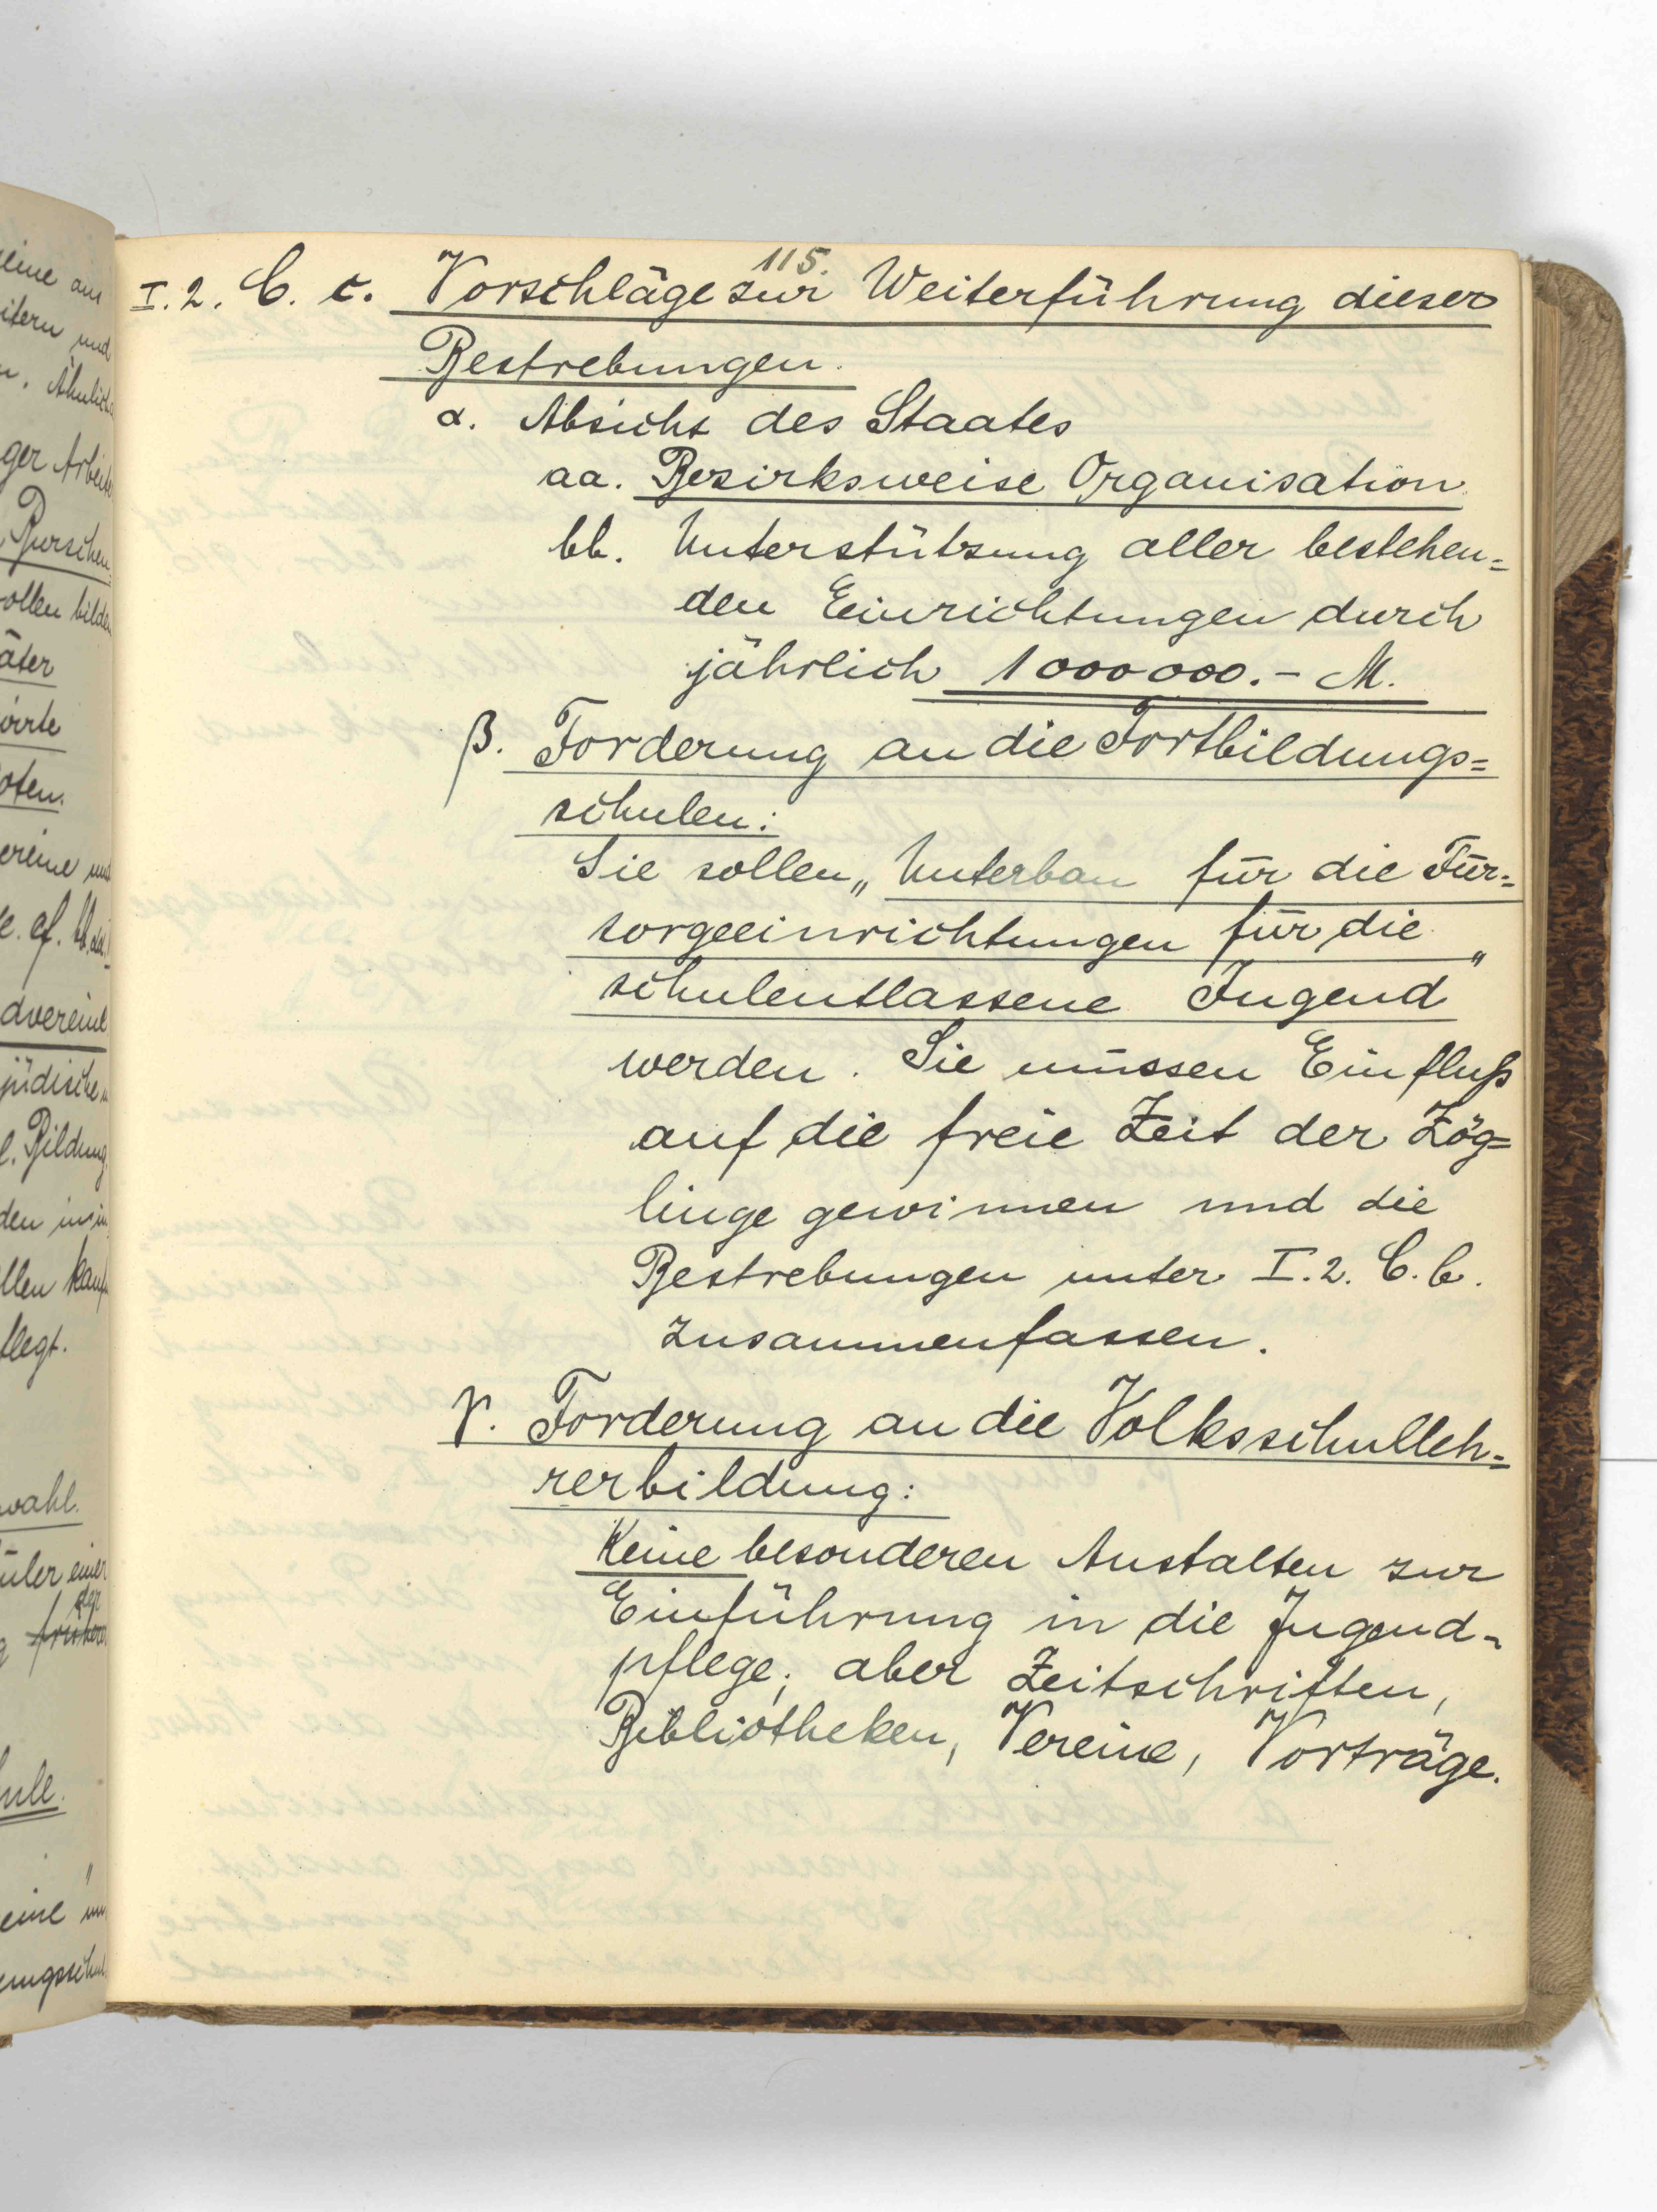 115.
I. 2. C. c. Vorschläge zur Weiterführung dieser
Bestrebungen.
α. Absicht des Staates
aa. Bezirksweise Organisation.
bb. Unterstützung aller bestehen=
den Einrichtungen durch
jährlich 1000000.- M.
β. Forderung an die Fortbildungs=
schulen:
Sie sollen „Unterbau für die Für=
sorgeeinrichtungen für die
schulentlassene Jugend"
werden. Sie müssen Einfluß
auf die freie Zeit der Zög=
linge gewinnen und die
Bestrebungen unter I. 2. C. b.
zusammenfassen.
γ. Forderung an die Volksschulleh=
rerbildung:
Keine besonderen Anstalten zur
Einführung in die Jugend=
pflege; aber Zeitschriften,
Bibliotheken, Vereine, Vorträge.
eine aus
itern und
Ähnlich
ger Arbeiter
Burschen
ollen bilden
äter
oten.
ereine und
e. cf.
dvereine
jüdische
l. Bildung
den
llen kauf
flegt.
wahl.
üler einer
der
eine
ungsschul